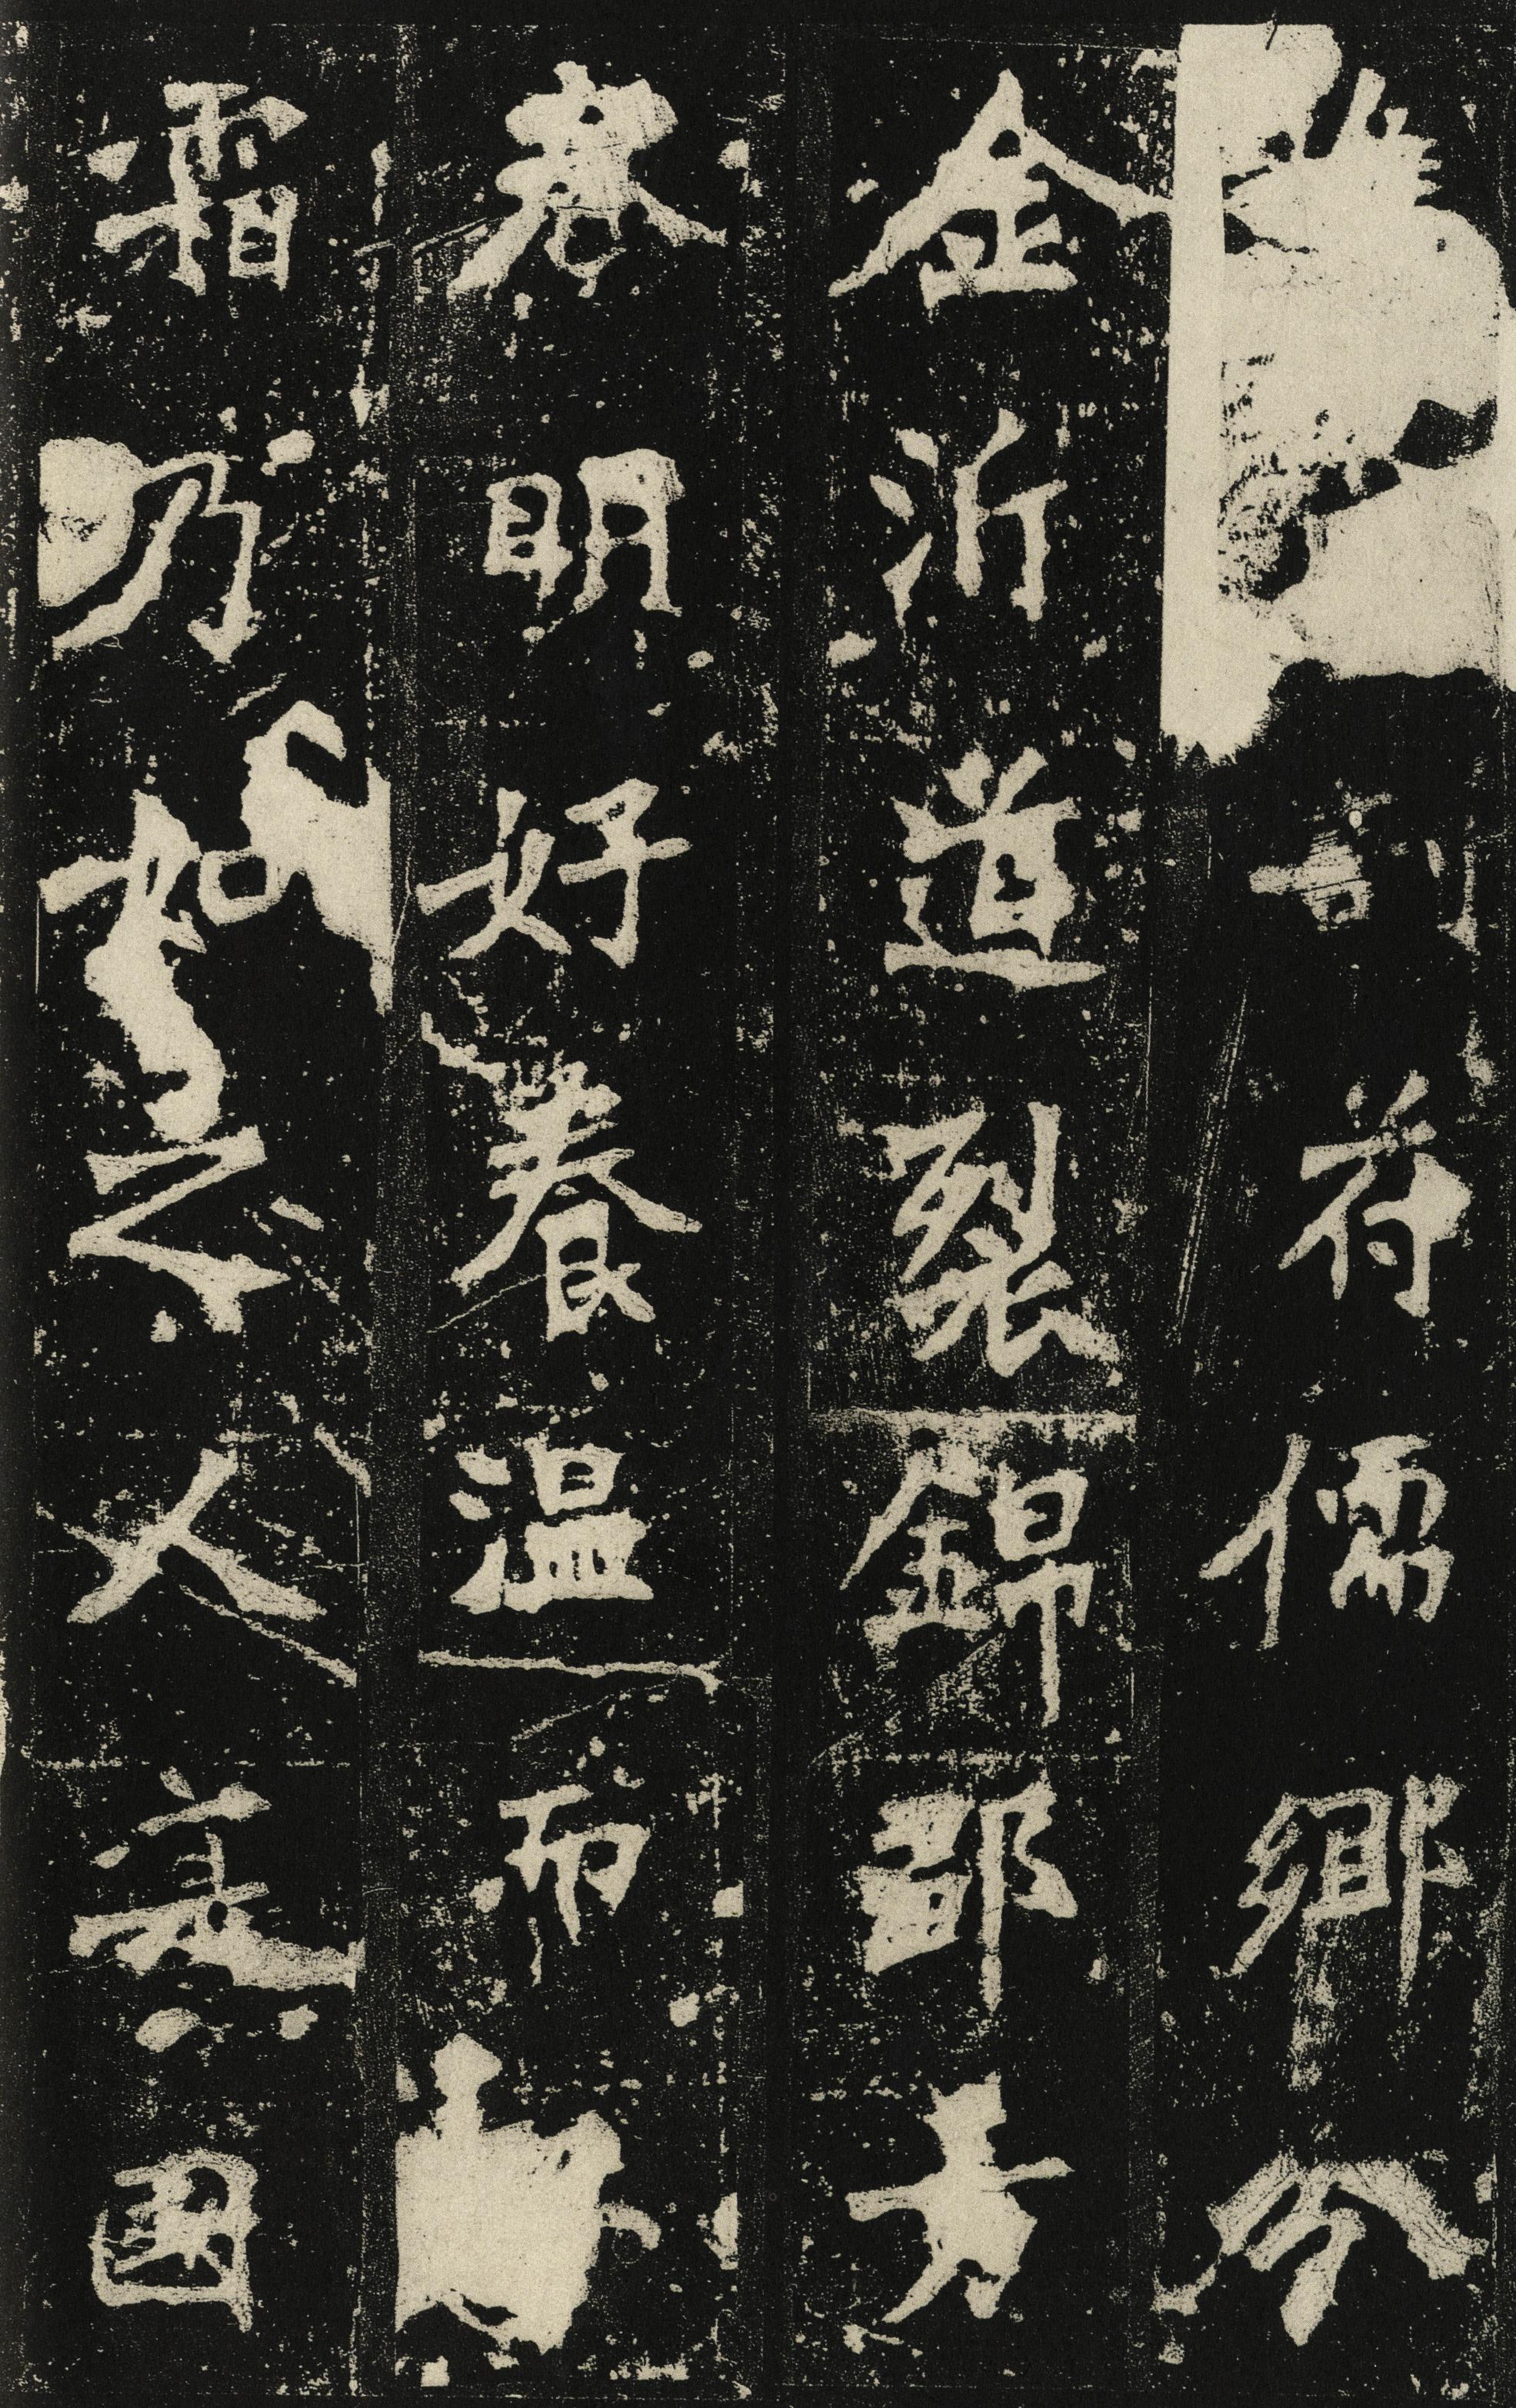 剖符儒鄉分
金沂道裂錦鄒方
春明好養温而
霜乃如之人寔國